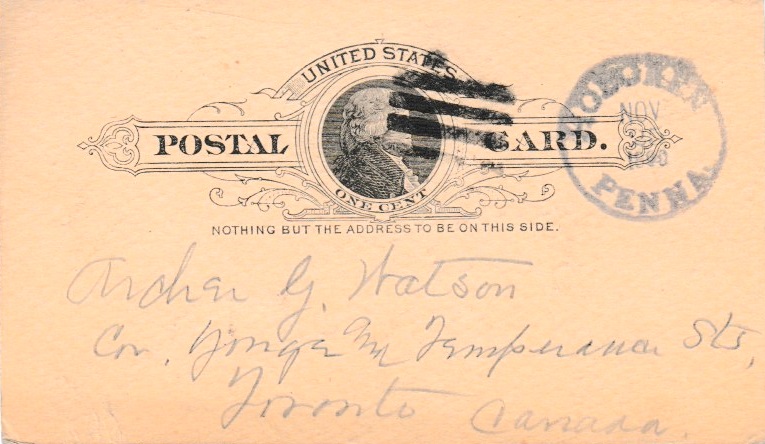 UNITED STATES
POSTAL CARD.
ONE CENT
NOTHING BUT THE ADDRESS TO BE ON THIS SIDE.
NOV
PENNA.
Archer G. Watson
Cor. Yonge & Temperance Sts,
Toronto Canada.